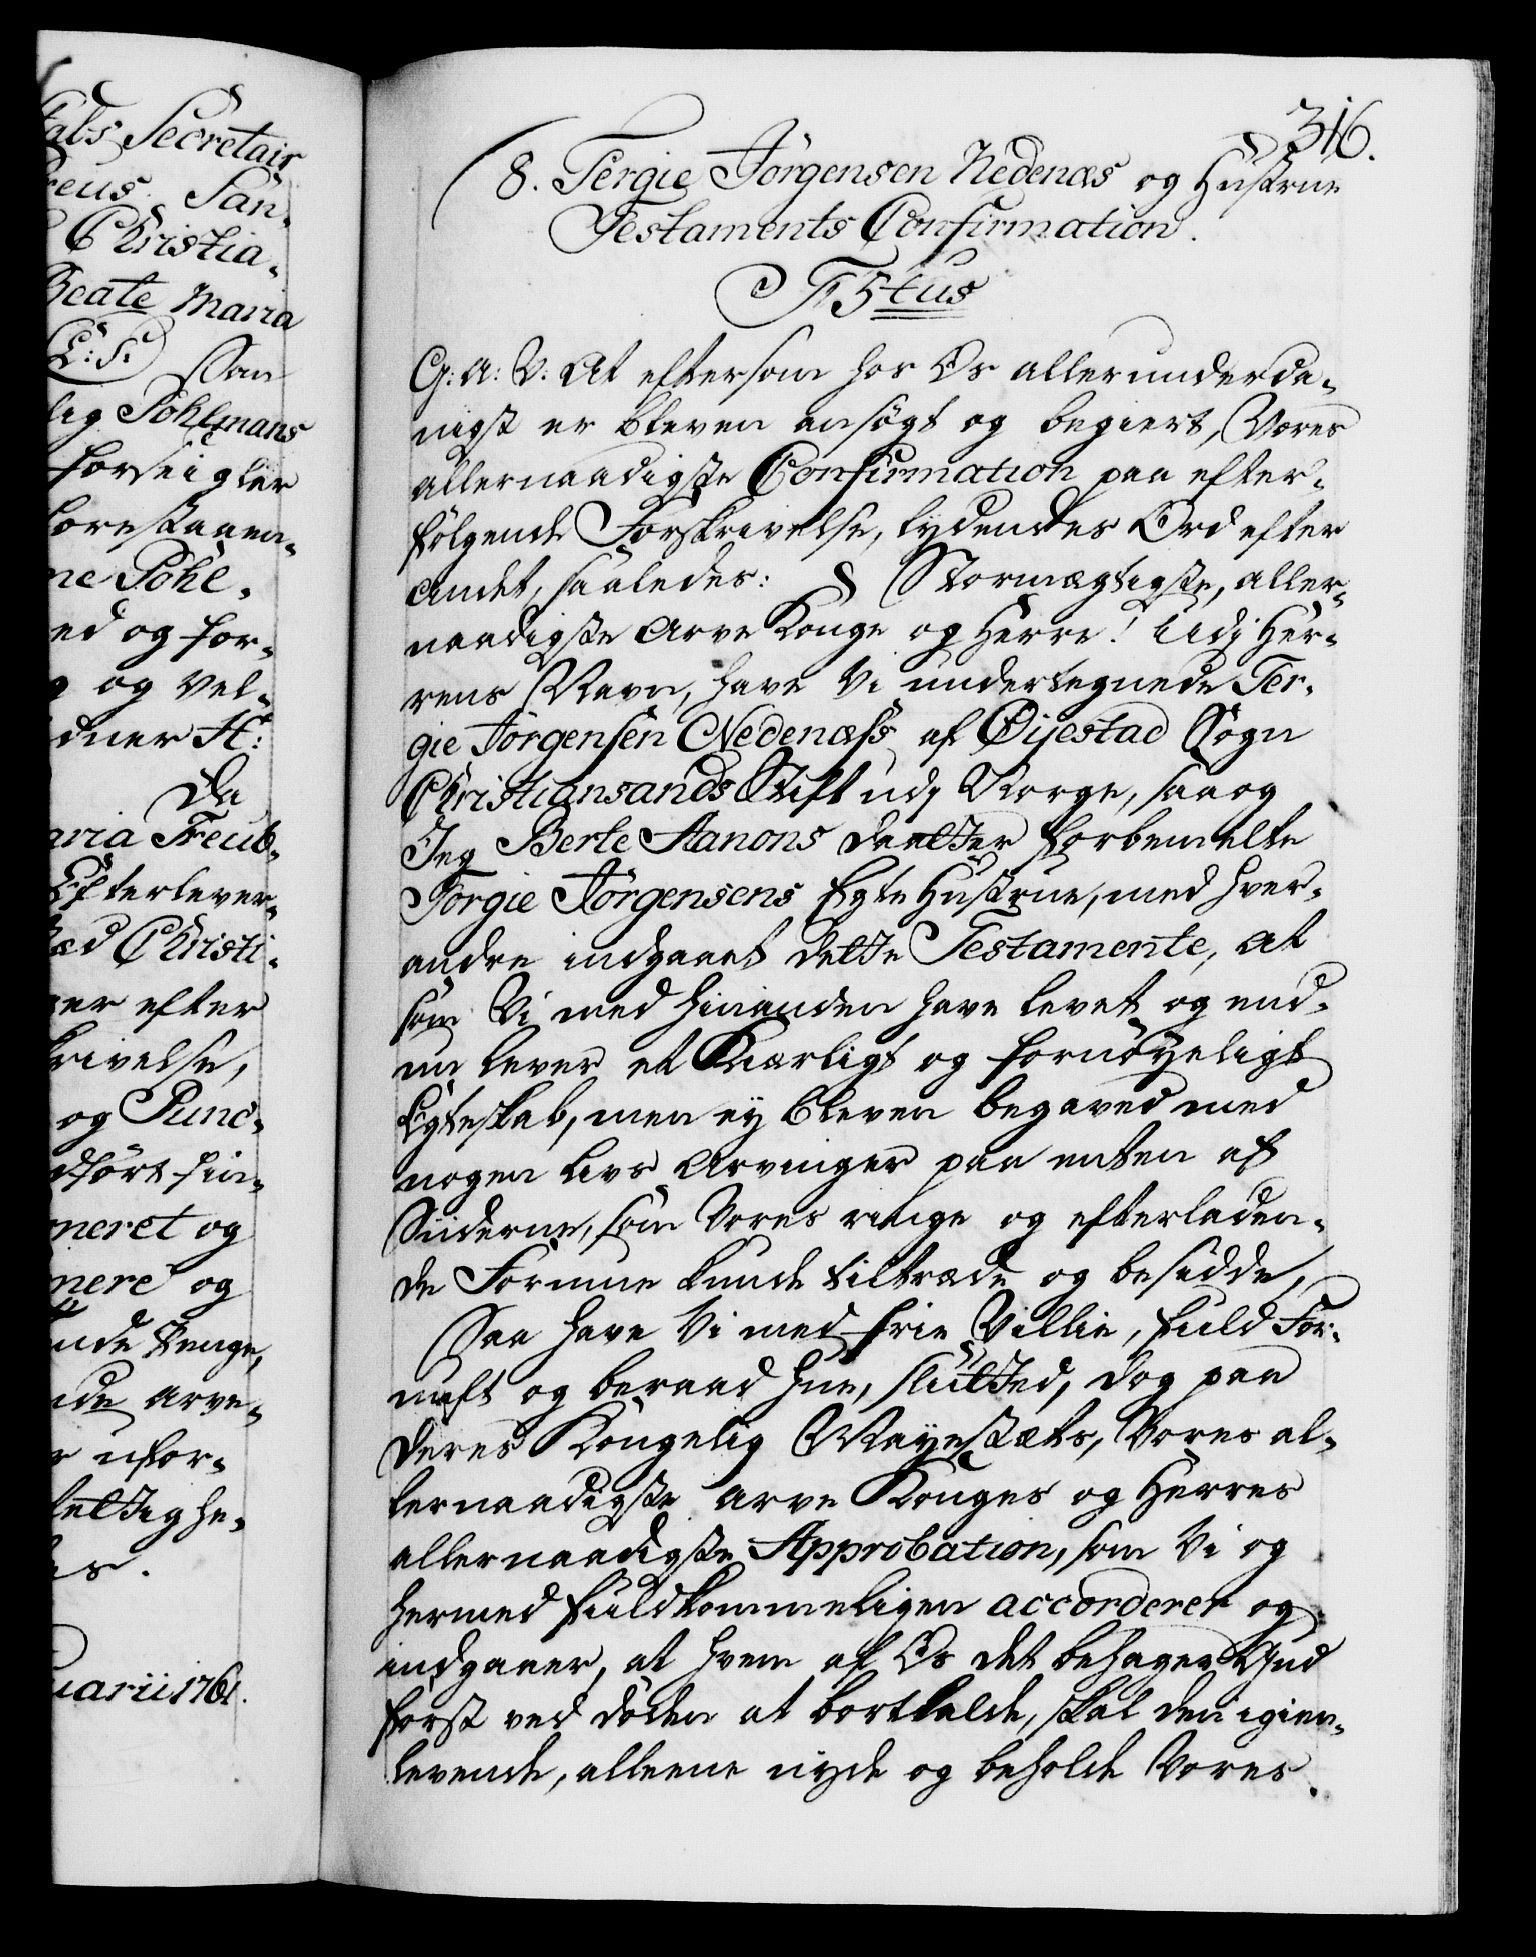 tabs Secretair
reus. San-
Christia-
Beate Maria
L: S. Som
lig Pohlmans
forseigler
forestaaen-
ne Pohl-
ed og for-
og vel-
dner H:
Da
aria Treub-
Efterlever-
Christi-
er efter
krivelse,
og Punc-
dført fin-
neret og
nere og
unde Penge,
nde Arve-
r ufor-
lettighe-
es.
uarii 1761.
316.
8. Tergie Jörgensen Nedenæs og Hustrue
Testaments Confirmation.
F 5tus
G: A: V: At eftersom hos Os allerunderda-
nigst er bleven ansøgt og begiert, Vores
allernaadigste Confirmation paa efter-
følgende Forskrivelse, lydendes Ord efter
andet, saaledes: § Stormægtigste, aller-
naadigste Arve Konge og Herre! Udj Her-
rens Navn, have Vi undertegnede Ter-
gie Jörgensen Nedenæss af Øijestad Sogn
Christiansands Stift udj Norge, saa og
Jeg Berte Aanons Daatter forbemelte
Torgie Jörgensens Egte Hustrue, med hver-
andre indgaaet dette Testamente, at
som Vi med hinanden have levet og end-
nu lever et Kiærligt og fornøyeligt
Egteskab, men ey bleven begaved med
nogen Livs Arvinger paa enten af
Siiderne, som Vores ringe og efterladen-
de Formue kunde tiltræde og besidde,
Saa have Vi med frie Villie, fuld For-
nuft og beraad Hue, sluttted, dog paa
Deres Kongelig Mayestæts, Vores al-
lernaadigste Arve Konges og Herres
allernaadigste Approbation, som Vi og
hermed fuldkommeligen accorderer og
indgaaer, at hvem af Os det behager Gud
først ved døden at bortkalde, skal den igien-
levende, alleene nyde og beholde Vores